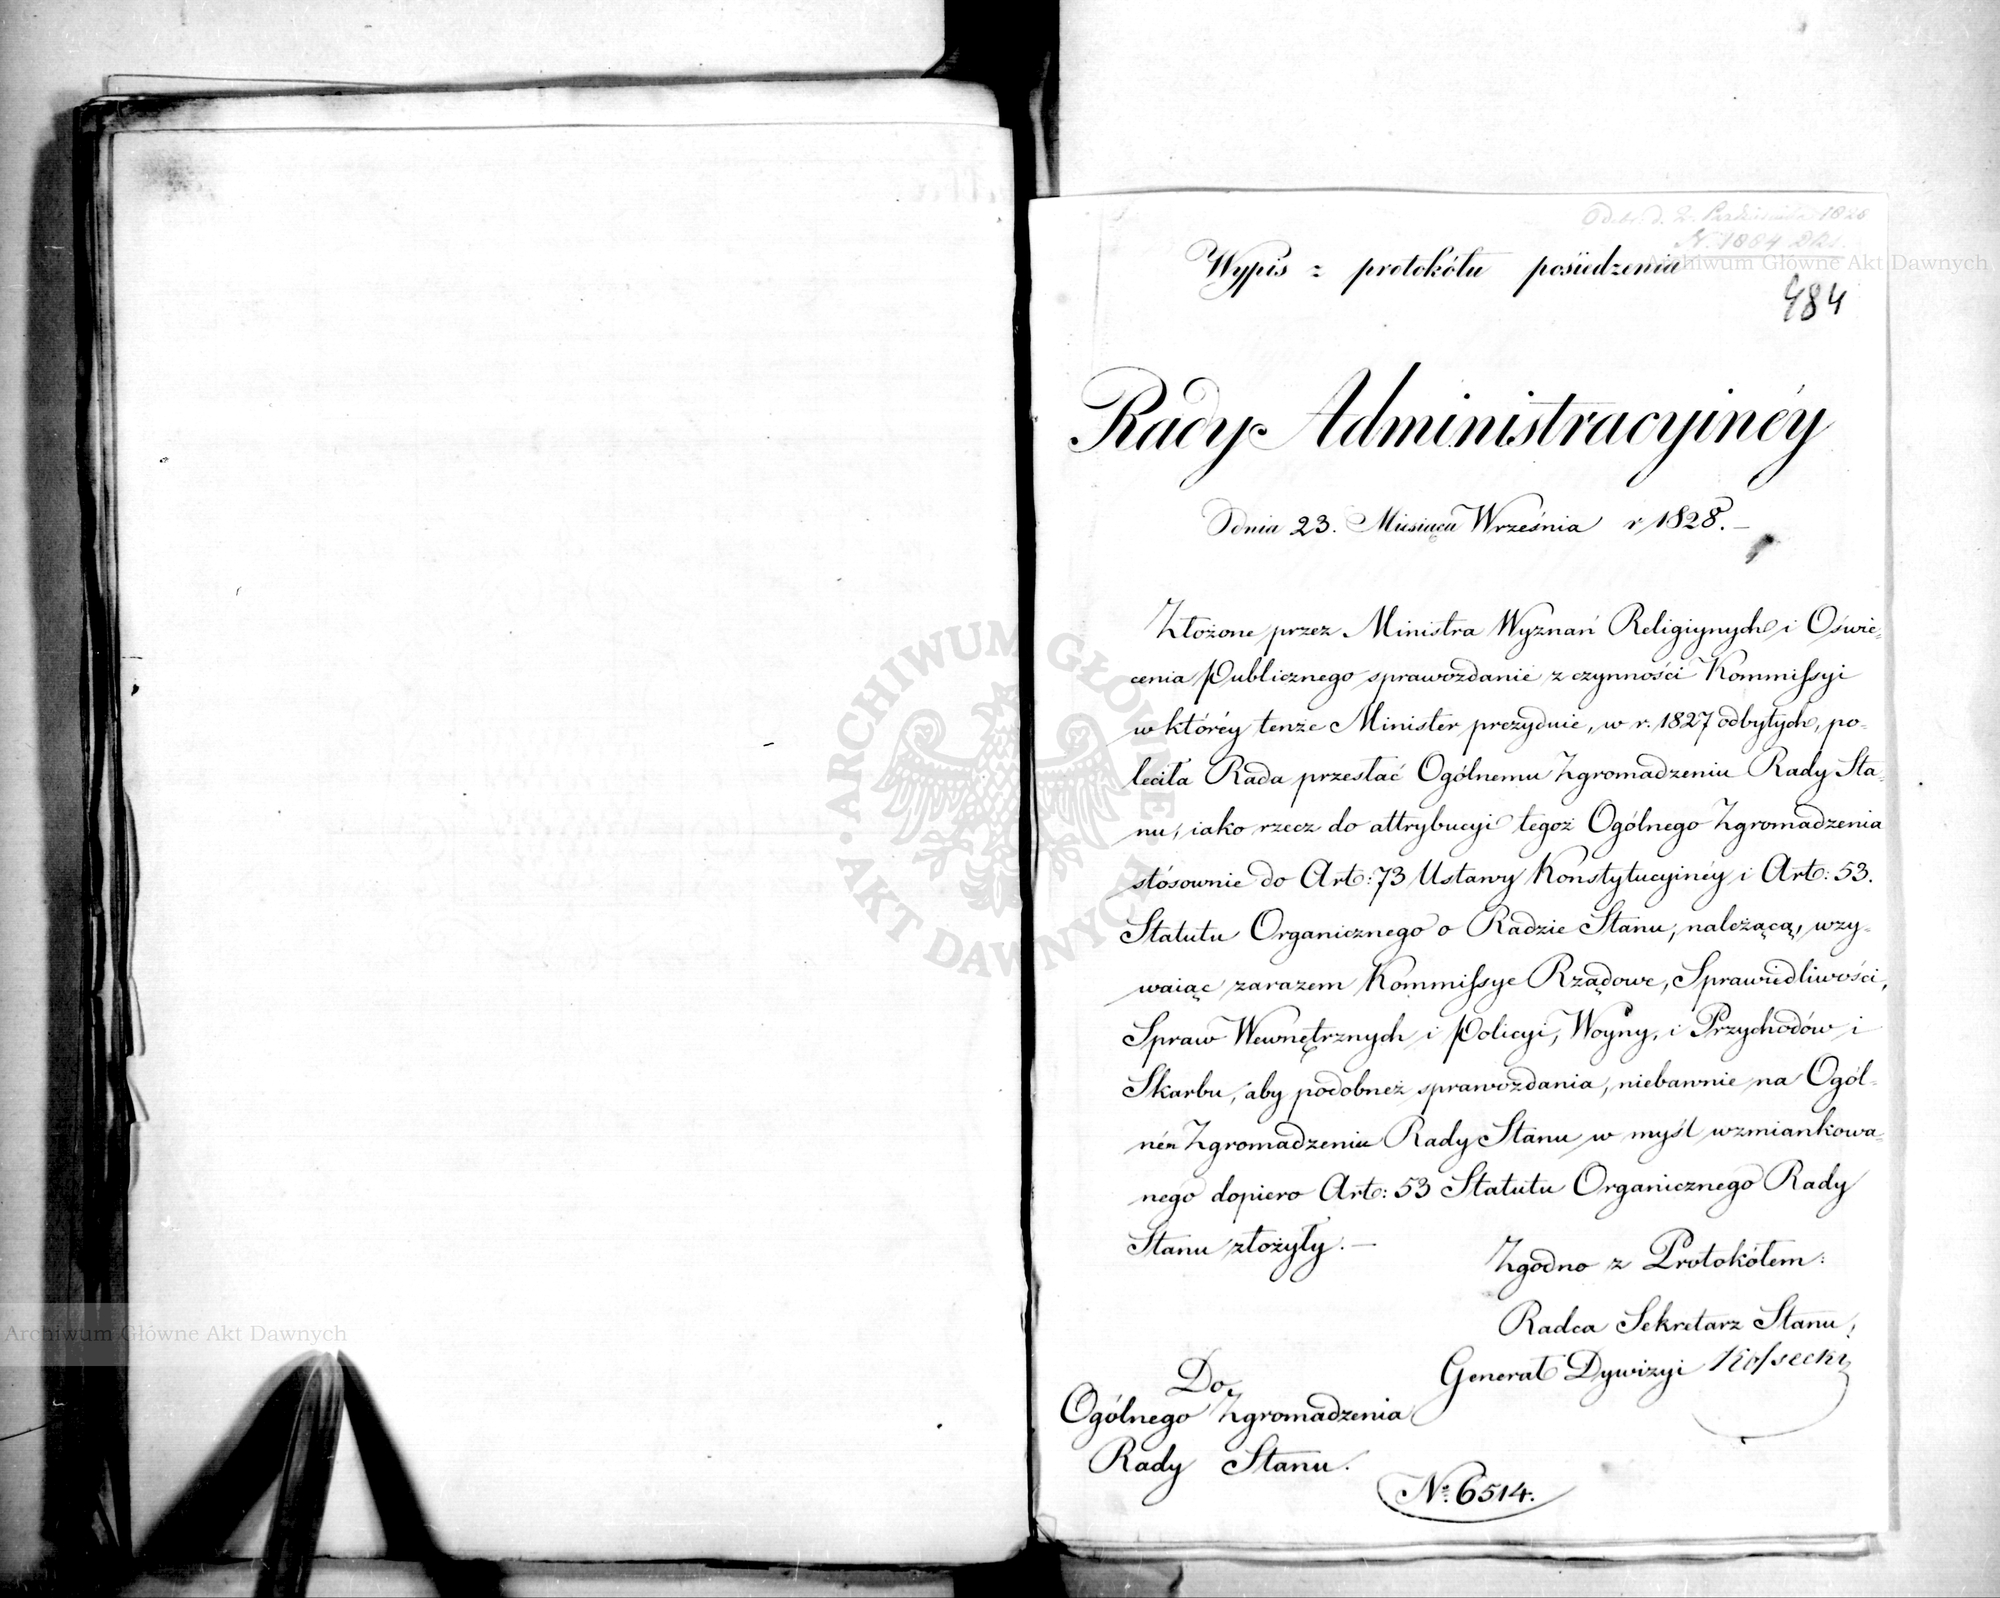 Odeb. d. 2. Października 1828
N. 1884
Wypis z protokółu posiedzenia
484
Rady Administracyinéy
Dnia 23. Miesiąca Września r 1828. —
Złożone przez Ministra Wyznań Religiynych i Oświe-
cenia Publicznego sprawozdanie z czynności Kommissyi
w któréy tenże Minister prezyduie, w r. 1827 odbytych, po-
leciła Rada przesłać Ogólnemu Zgromadzeniu Rady Sta-
nu, iako rzecz do attrybucyi tegoż Ogólnego Zgromadzenia
stósownie do Art: 73 Ustawy Konstytucyinéy i Art: 53.
Statutu Organicznego o Radzie Stanu, należącą, wzy-
waiąc zarazem Kommissye Rządowe, Sprawiedliwości,
Spraw Wewnętrznych i Policyi, Woyny, i Przychodów i
Skarbu, aby podobneż sprawozdania, niebawnie na Ogól-
ném Zgromadzeniu Rady Stanu w myśl wzmiankowa-
nego dopiero Art: 53 Statutu Organicznego Rady
Stanu złożyły. —
Zgodno z Protokółem:
Radca Sekretarz Stanu,
Generał Dywizyi Kossecki
Do
Ogólnego Zgromadzenia
Rady Stanu.
No. 6514.
Archiwum Główne Akt Dawnych
ARCHIWUM GŁÓWNE · AKT DAWNYCH ·
Archiwum Główne Akt Dawnych